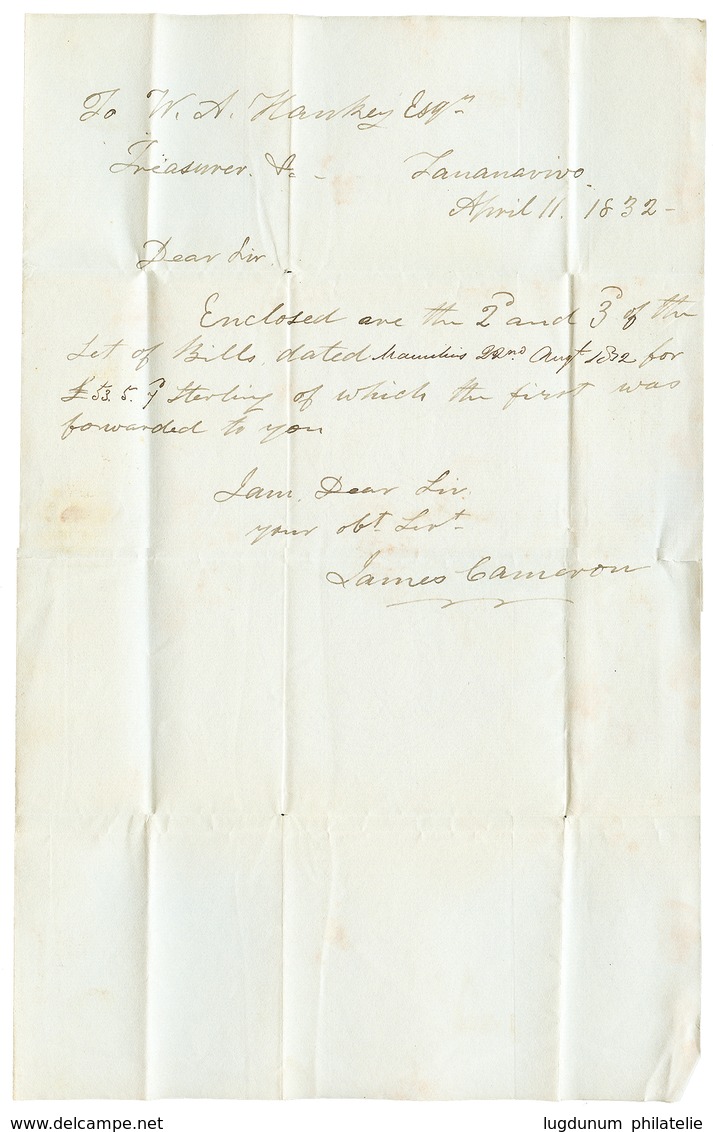 To W. A. Hankey Esqr
Treasurer. &c - Tananarivo
April 11. 1832 -
Dear Sir.
Enclosed are the 2d and 3d of the
Set of Bills, dated Mauritius 22nd Augt 1832 for
£53. 5. 7 Sterling of which the first was
forwarded to you
I am, Dear Sir.
your obt Servt
James Cameron
www.delcampe.net
lugdunum philatelie